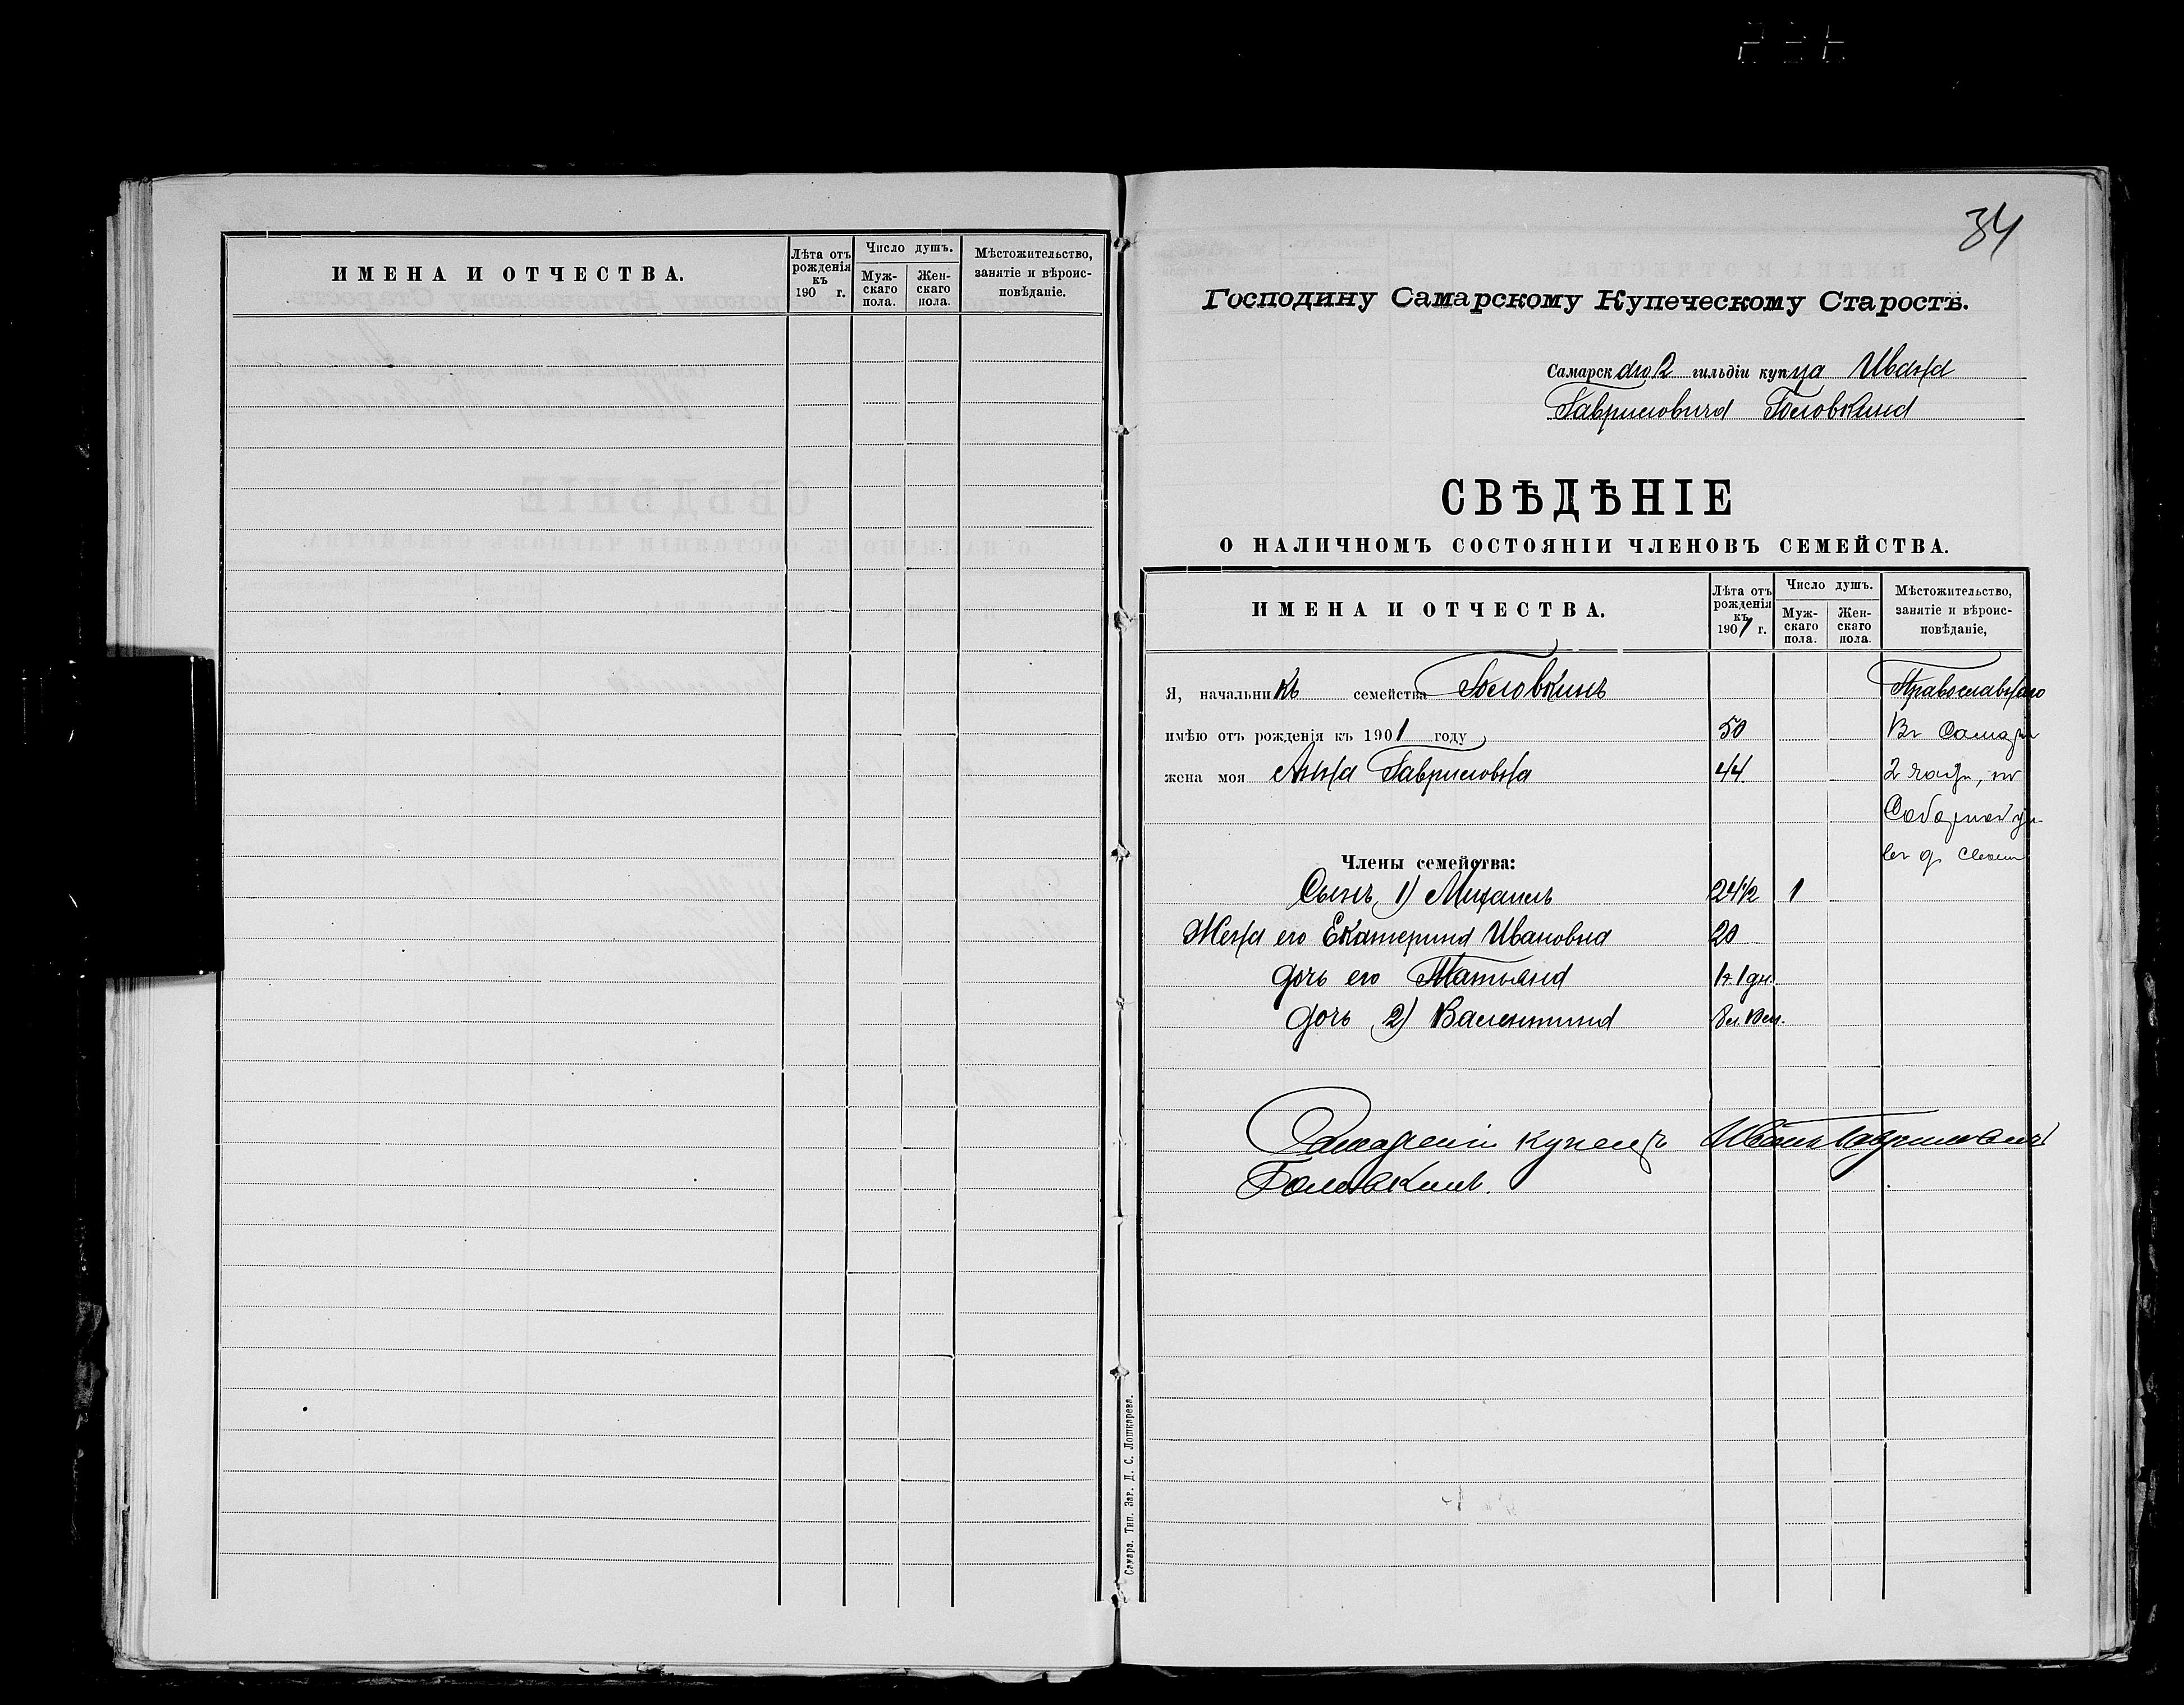 ИМЕНА И ОТЧЕСТВА.
Лѣта отъ рожденія къ 190 г.
Число душъ.
Мужскаго пола.
Женскаго пола.
Мѣстожительство, занятіе и вѣроисповѣданіе.
34
Господину Самарскому Купеческому Старостѣ.
Самарскаго 2 гильдіи купца Ивана
Гавриловича Головкина
СВѢДѢНІЕ
О НАЛИЧНОМЪ СОСТОЯНІИ ЧЛЕНОВЪ СЕМЕЙСТВА.
ИМЕНА И ОТЧЕСТВА.
Лѣта отъ рожденія къ 1901 г.
Число душъ.
Мужскаго пола.
Женскаго пола.
Мѣстожительство, занятіе и вѣроисповѣданіе,
Я, начальникъ семейства Головкинъ Православнаго
имѣю отъ рожденія къ 1901 году 50 Въ Самарѣ
жена моя Анна Гавриловна 44 2 части, по
Соборной ул
въ д. своемъ
Члены семейства:
Сынъ, 1) Михаилъ 24½ 1
Жена его Екатерина Ивановна 20
дочь его Татьяна 1г. 1дн.
дочь 2) Валентина
Самарскій купецъ Иванъ Гавриловичъ
Головкинъ.
Самара. Тип. Заг. Д. С. Лошкарева.